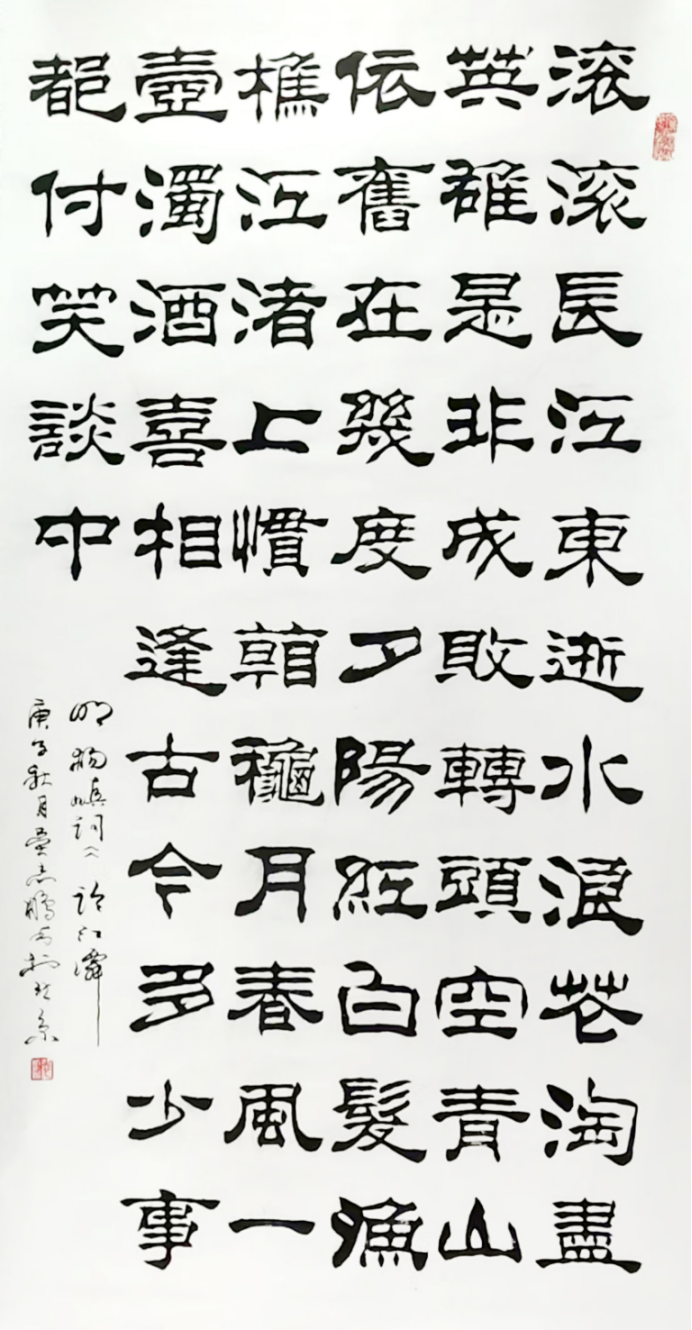 滚滚長江東逝水浪花淘盡
英雄是非成敗轉頭空青山
依舊在幾度夕陽紅白髮漁
樵江渚上慣看龝月春風一
壺濁酒喜相逢古今多少事
都付笑談中
明楊慎詞臨江僊
庚子秋月志鵬書於北京